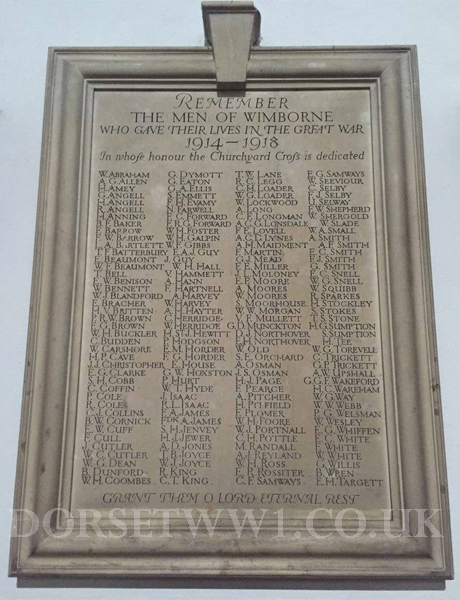 REMEMBER
THE MEN OF WIMBORNE
WHO GAVE THEIR LIVES IN THE GREAT WAR
1914–1918
In whose honour the Churchyard Cross is dedicated
W. ABRAHAM
A. G. ALLEN
H. AMEY
C. ANGELL
H. ANGELL
R. ANGELL
H. ANNING
B. F. BAKER
F. BARROW
W. W. BARROW
L. A. B. BARTLETT
T. BATTERBURY
E. BEAUMONT
W. F. BEAUMONT
T. BELL
W. BENISON
W. BENNETT
W. J. BLANDFORD
E. BRACHER
H. V. BRITTEN
P. R. W. BROWN
E. G. BROWN
W. H. BUCKLER
C. BUDDEN
W. CARSHORE
H. P. CAVE
J. CHRISTOPHER
E. G. CLARKE
S. H. COBB
C. COFFIN
P. COLE
R. COLE
L. J. COLLINS
H. W. CORNICK
E. W. CUFF
F. CULL
J. CUTLER
W. C. CUTLER
W. G. DEAN
B. DUNFORD
W. H. COOMBES
G. DYMOTT
G. EATON
T. A. ELLIS
F. EMMETT
F. H. EVAMY
N. FARWELL
E. C. FORWARD
F. G. FORWARD
W. H. FOSTER
W. H. GALPIN
W. F. GIBBS
E. A. J. GUY
J. GUY
W. H. HALL
V. HAMMETT
A. HANN
F. HARTNELL
A. HARVEY
W. HARVEY
A. F. HAYTER
C. HERRIDGE
W. HERRIDGE
H. ST J. HEWITT
F. HODGSON
E. M. HORDER
F. G. HORDER
E. HOUSE
G. W. HOXSTON
P. HURT
W. T. HYDE
J. ISAAC
R. L. ISAAC
E. A. JAMES
A. JAMES
S. H. JENVEY
H. J. JEWER
A. G. JONES
L. B. JOYCE
W. J. JOYCE
R. KING
C. T. KING
T. W. LANE
R. C. LEGG
C. H. LOADER
W. G. LOADER
W. LOCKWOOD
A. LONG
C. F. LONGMAN
A. C. G. LONSDALE
F. E. LOVELL
A. C. E. LYNES
A. H. MAIDMENT
F. MARTIN
G. J. MEAD
F. E. MILLER
J. L. MOLONEY
E. F. MOORE
A. MOORES
W. MOORES
S. MOORHOUSE
W. W. MORGAN
V. F. MULLETT
G. D. MINCKTON
D. J. NORTHOVER
F. H. NORTHOVER
W. OLD
S. E. ORCHARD
A. OSMAN
J. S. OSMAN
H. J. PAGE
F. PEARCE
A. PITCHER
H. PITFIELD
F. PLOMER
W. H. POORE
W. J. PORTNALL
C. H. POTTLE
M. RANDALL
A. J. REYLAND
W. H. ROSS
E. R. ROSSITER
C. F. SAMWAYS
F. G. SAMWAYS
W. SEEVIOUR
C. SELBY
F. J. SELBY
U. SELWAY
W. SHEPHERD
W. SHERGOLD
W. SLADE
W. A. SMALL
A. SMITH
A. F. SMITH
E. C. SMITH
F. J. SMITH
G. SMITH
E. C. SNELL
W. G. SNELL
W. SQUIBB
R. SPARKES
H. STOCKLEY
S. STOKES
T. S. STONE
H. G. SUMPTION
S. SUMPTION
H. TEE
W. G. TOREVELL
C. J. TRICKETT
G. P. TRICKETT
A. W. UPSHALL
G. G. F. WAKEFORD
H. G. WARDHAM
W. G. WAY
W. W. WEBB
P. G. WELSMAN
F. WESLEY
E. G. WHIFFEN
E. C. WHITE
F. WHITE
W. WHITE
G. WILLIS
B. WREN
E. H. TARGETT
GRANT THEM O LORD ETERNAL REST
DORSETWW1.CO.UK